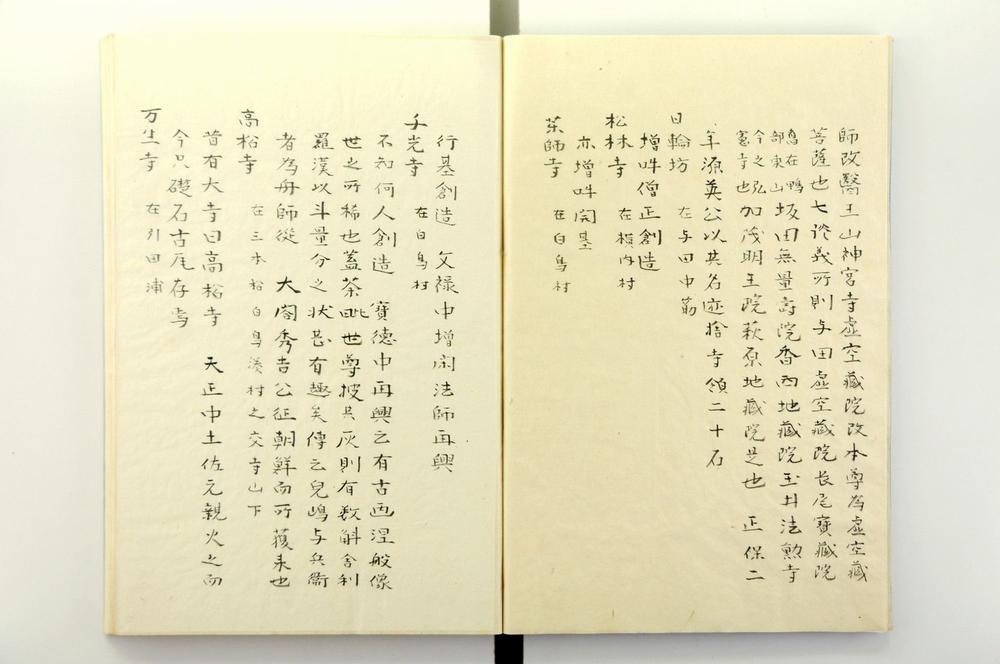 師改醫王山神宮寺虚空藏院改本尊為虚空藏
菩薩也七談義所則与田虚空藏院長尾寶藏院
鴨部東山坂田無量壽院香西地藏院玉井法勲寺
今之弘憲寺也加茂明王院萩原地藏院是也 正保二
年源英公以其名迹捨寺領二十石
日輪坊 在与田中筋
増吽僧正創造
松林寺 在横内村
亦増吽開基
薬師寺 在白鳥村
行基創造 文禄中増閑法師再興
千光寺 在白鳥村
不知何人創造 寶德中再興云有古画涅般像
世之所稀也蓋荼毗世尊披其灰則有数斛舎利
羅漢以斗量分之状甚有趣矣傳云兒嶋与兵衛
者為舟師従 大閤秀吉公征朝鮮而所獲来也
高松寺 在三本松白鳥湊村之交寺山下
昔有大寺曰高松寺 天正中土佐元親火之而
今只礎石古瓦存焉
万生寺 在引田浦